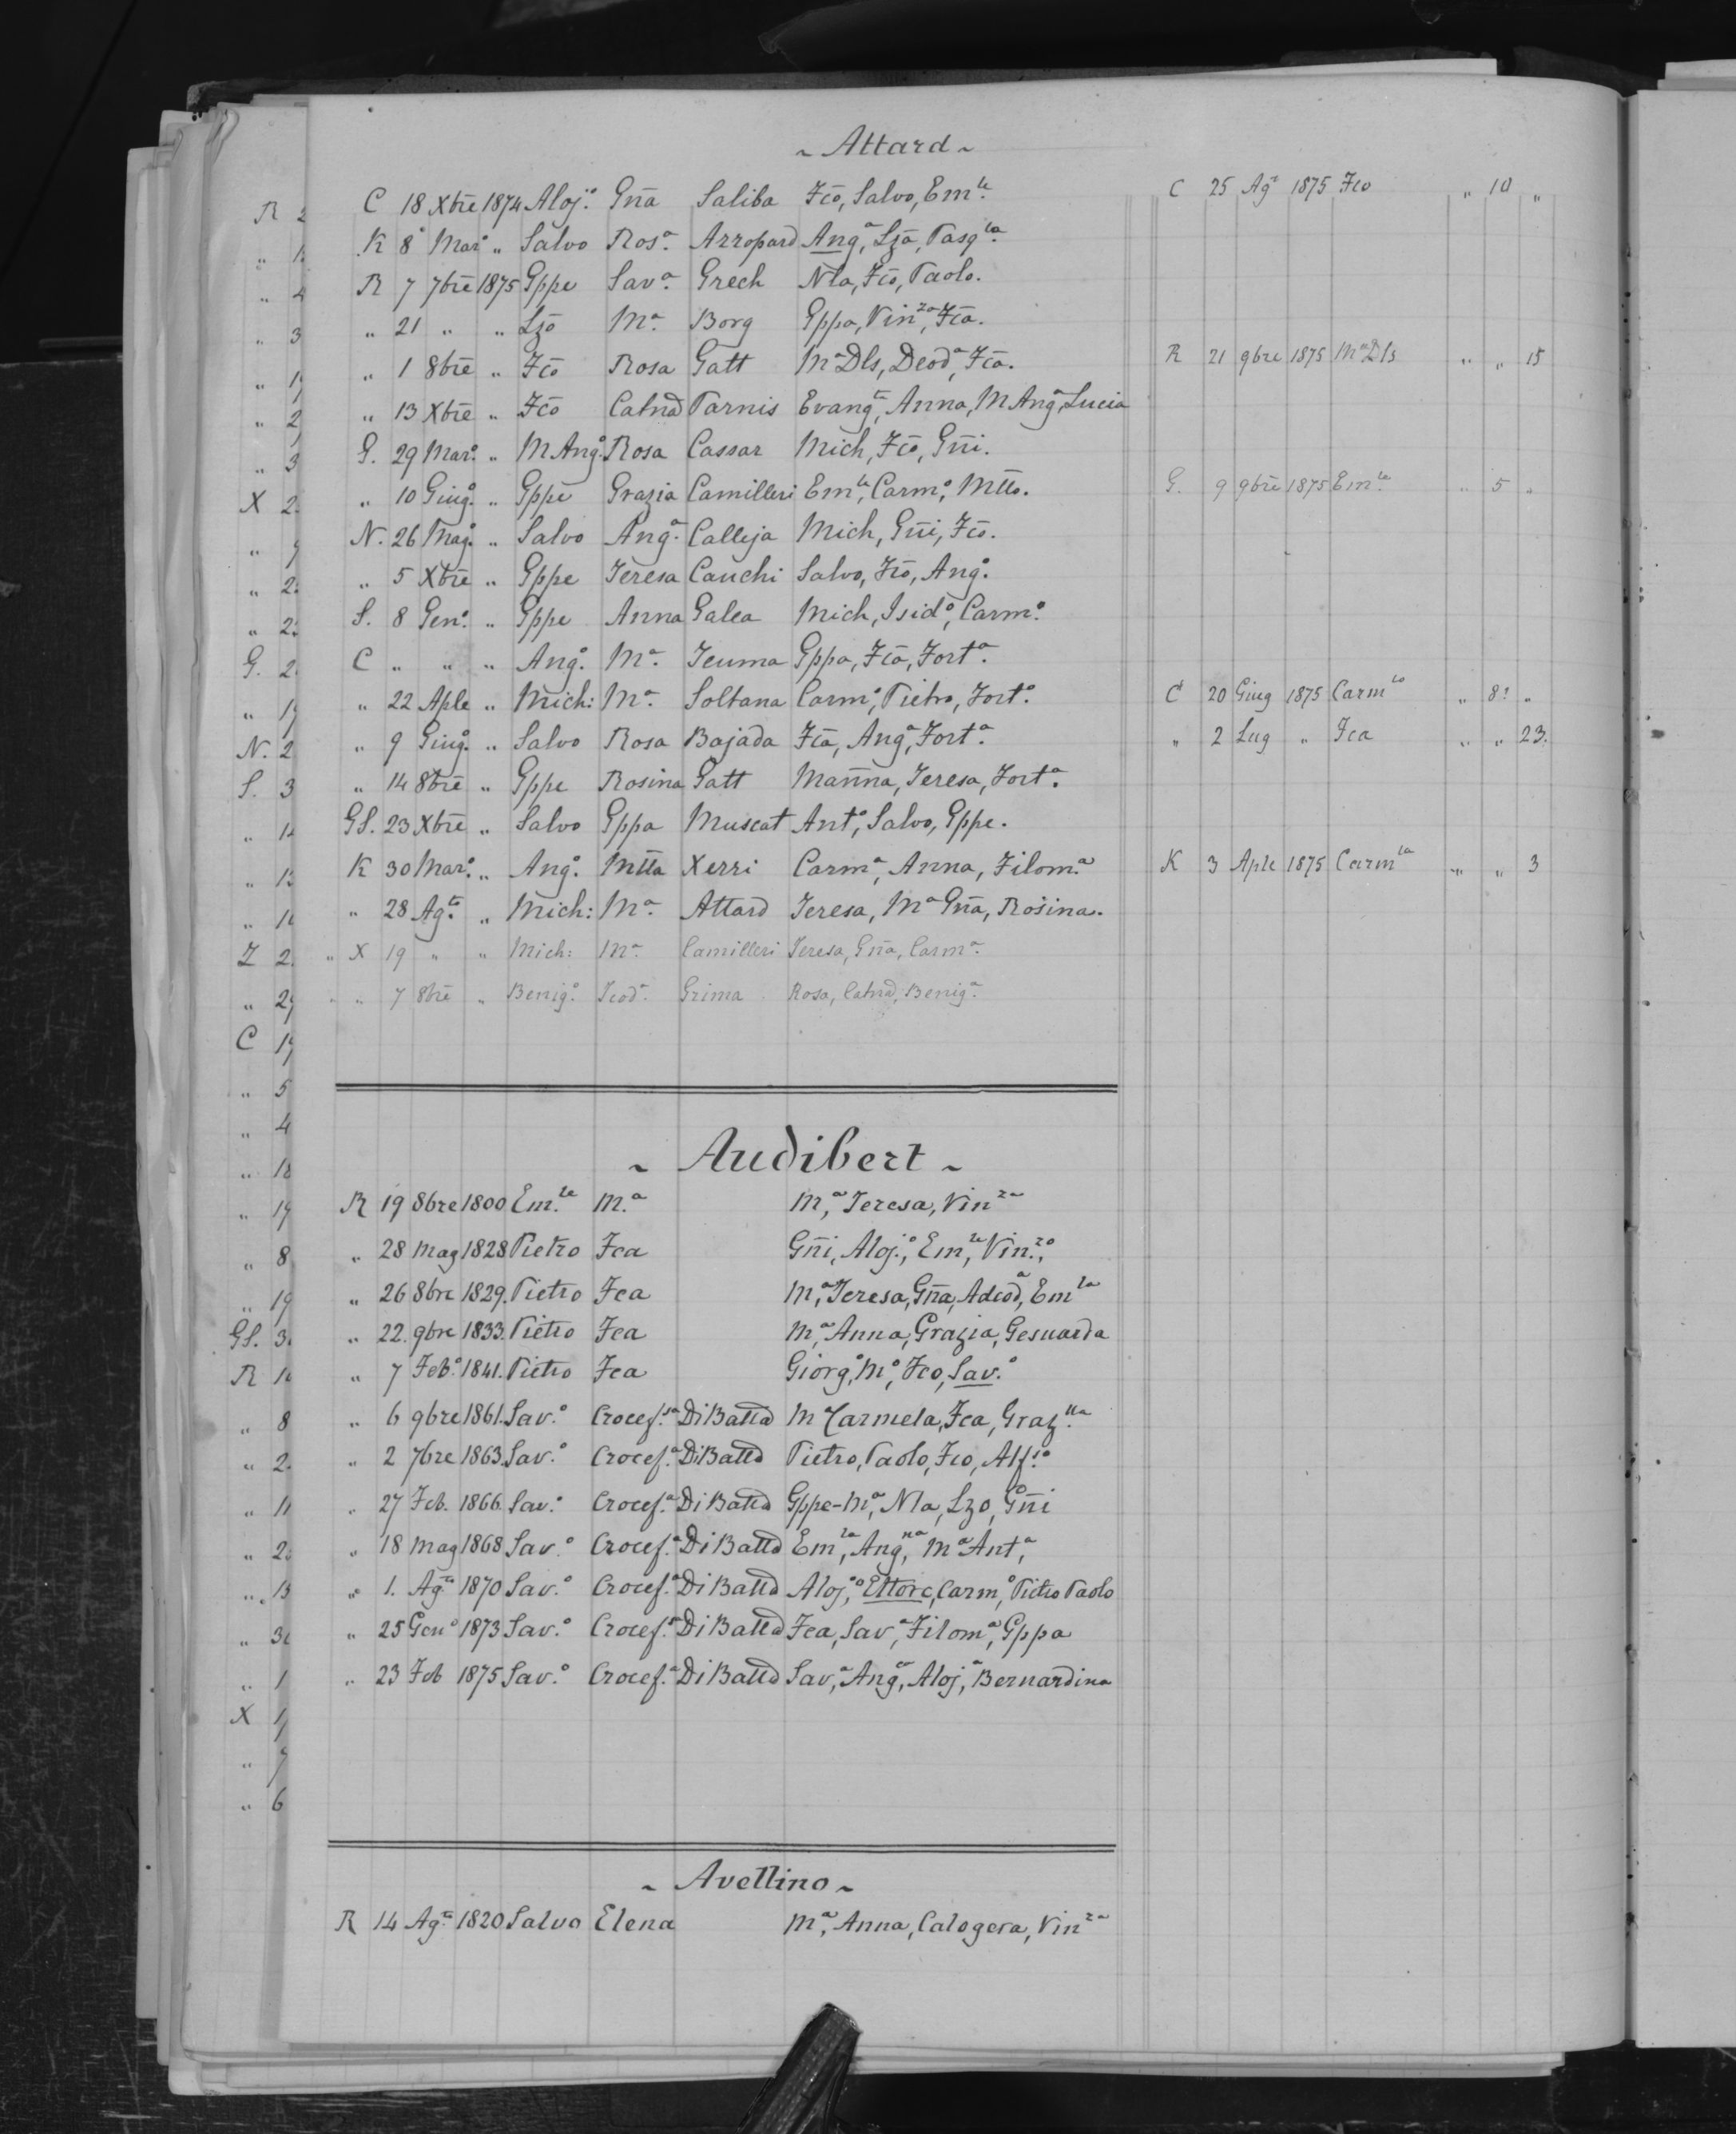 ~ Attard ~
C 18 Xbre 1874 Aloj.º Gña Saliba Fcō, Salvo, Em.le C 25 Ag.o 1875 Fco " 10 "
K 8º Mar.º " Salvo Ros.a Azzopard Ang.a, Lzā, Pasq.la
R 7 7bre 1875 Gppe Sav.a Grech Nla, Fcō, Paolo.
" 21 " " Lzō M.a Borg Gppa, Vin.za, Fcā.
" 1 8bre " Fcō Rosa Gatt M.a Dls, Deod.a, Fcā. R 21 9bre 1875 M.a Dls " " 15
" 13 Xbre " Fcō Catnā Farnis Evang.ta, Anna, M Ang.a, Lucia
G. 29 Mar.º " M Ang.º Rosa Cassar Mich, Fcō, Gñi.
" 10 Giug.º " Gppe Grazia Camilleri Em.le, Carm.º, Mtto. G. 9 9bre 1875 Em.le " 5 "
N. 26 Mag.º " Salvo Ang.a Calleja Mich, Gñi, Fcō.
" 5 Xbre " Gppe Teresa Cauchi Salvo, Fcō, Ang.º
S. 8 Gen.º " Gppe Anna Galea Mich, Isid.º, Carm.º
C " " " Ang.º M.a Teuma Gppa, Fcā, Fort.a
" 22 Aple " Mich: M.a Soltana Carm.º, Pietro, Fort.º C 20 Giug 1875 Carm.lo " 8? "
" 9 Giug.º " Salvo Rosa Bajada Fcā, Ang.a, Fort.a " 2 Lug " Fca " " 23.
" 14 8bre " Gppe Rosina Gatt Mañna, Teresa, Fort.a
GS. 23 Xbre " Salvo Gppa Muscat Ant.º, Salvo, Gppe.
K 30 Mar.º " Ang.º Mtta Xerri Carm.a, Anna, Filom.a K 3 Aple 1875 Carm.la " " 3
" 28 Ag.to " Mich: M.a Attard Teresa, M.a Gña, Rosina.
" X 19 " " Mich: M.a Camilleri Teresa, Gña, Carm.a
" " 7 8bre " Benig.º Teod.a Grima Rosa, Catnā, Benig.a
~ Audibert ~
R 19 8bre 1800 Em.le M.a M.a, Teresa, Vin.za
" 28 Mag 1828 Pietro Fca Gñi, Aloj.º, Em.le, Vin.zo,
" 26 8bre 1829. Pietro Fca M.a, Teresa, Gña, Adeod.a, Em.la
" 22. 9bre 1833. Pietro Fca M.a, Anna, Grazia, Gesuarda
" 7 Feb.º 1841. Pietro Fca Giorg.º, M.º, Fco, Sav.º
" 6 9bre 1861. Sav.º Crocef.sa Di Battā M Carmela, Fca, Graz.lla
" 2 7bre 1863. Sav.º Crocef.a Di Battā Pietro, Paolo, Fco, Alf.so
" 27 Feb. 1866. Sav.º Crocef.a Di Battā Gppe-M.a, Nla, Lzo, Gñi
" 18 Mag 1868 Sav.º Crocef.a Di Battā Em.la, Ang.na, M.a Ant.a,
" 1. Ag.to 1870 Sav.º Crocef.a Di Battā Aloj.º, Ettore, Carm.º, Pietro Paolo
" 25 Gen.º 1873 Sav.º Crocef.a Di Battā Fca, Sav.a, Filom.a, Gppa
" 23 Feb 1875 Sav.º Crocef.a Di Battā Sav.a, Ang.ca, Aloj.a, Bernardina
~ Avellino ~
R 14 Ag.to 1820 Salvo Elena M.a, Anna, Calogera, Vin.za